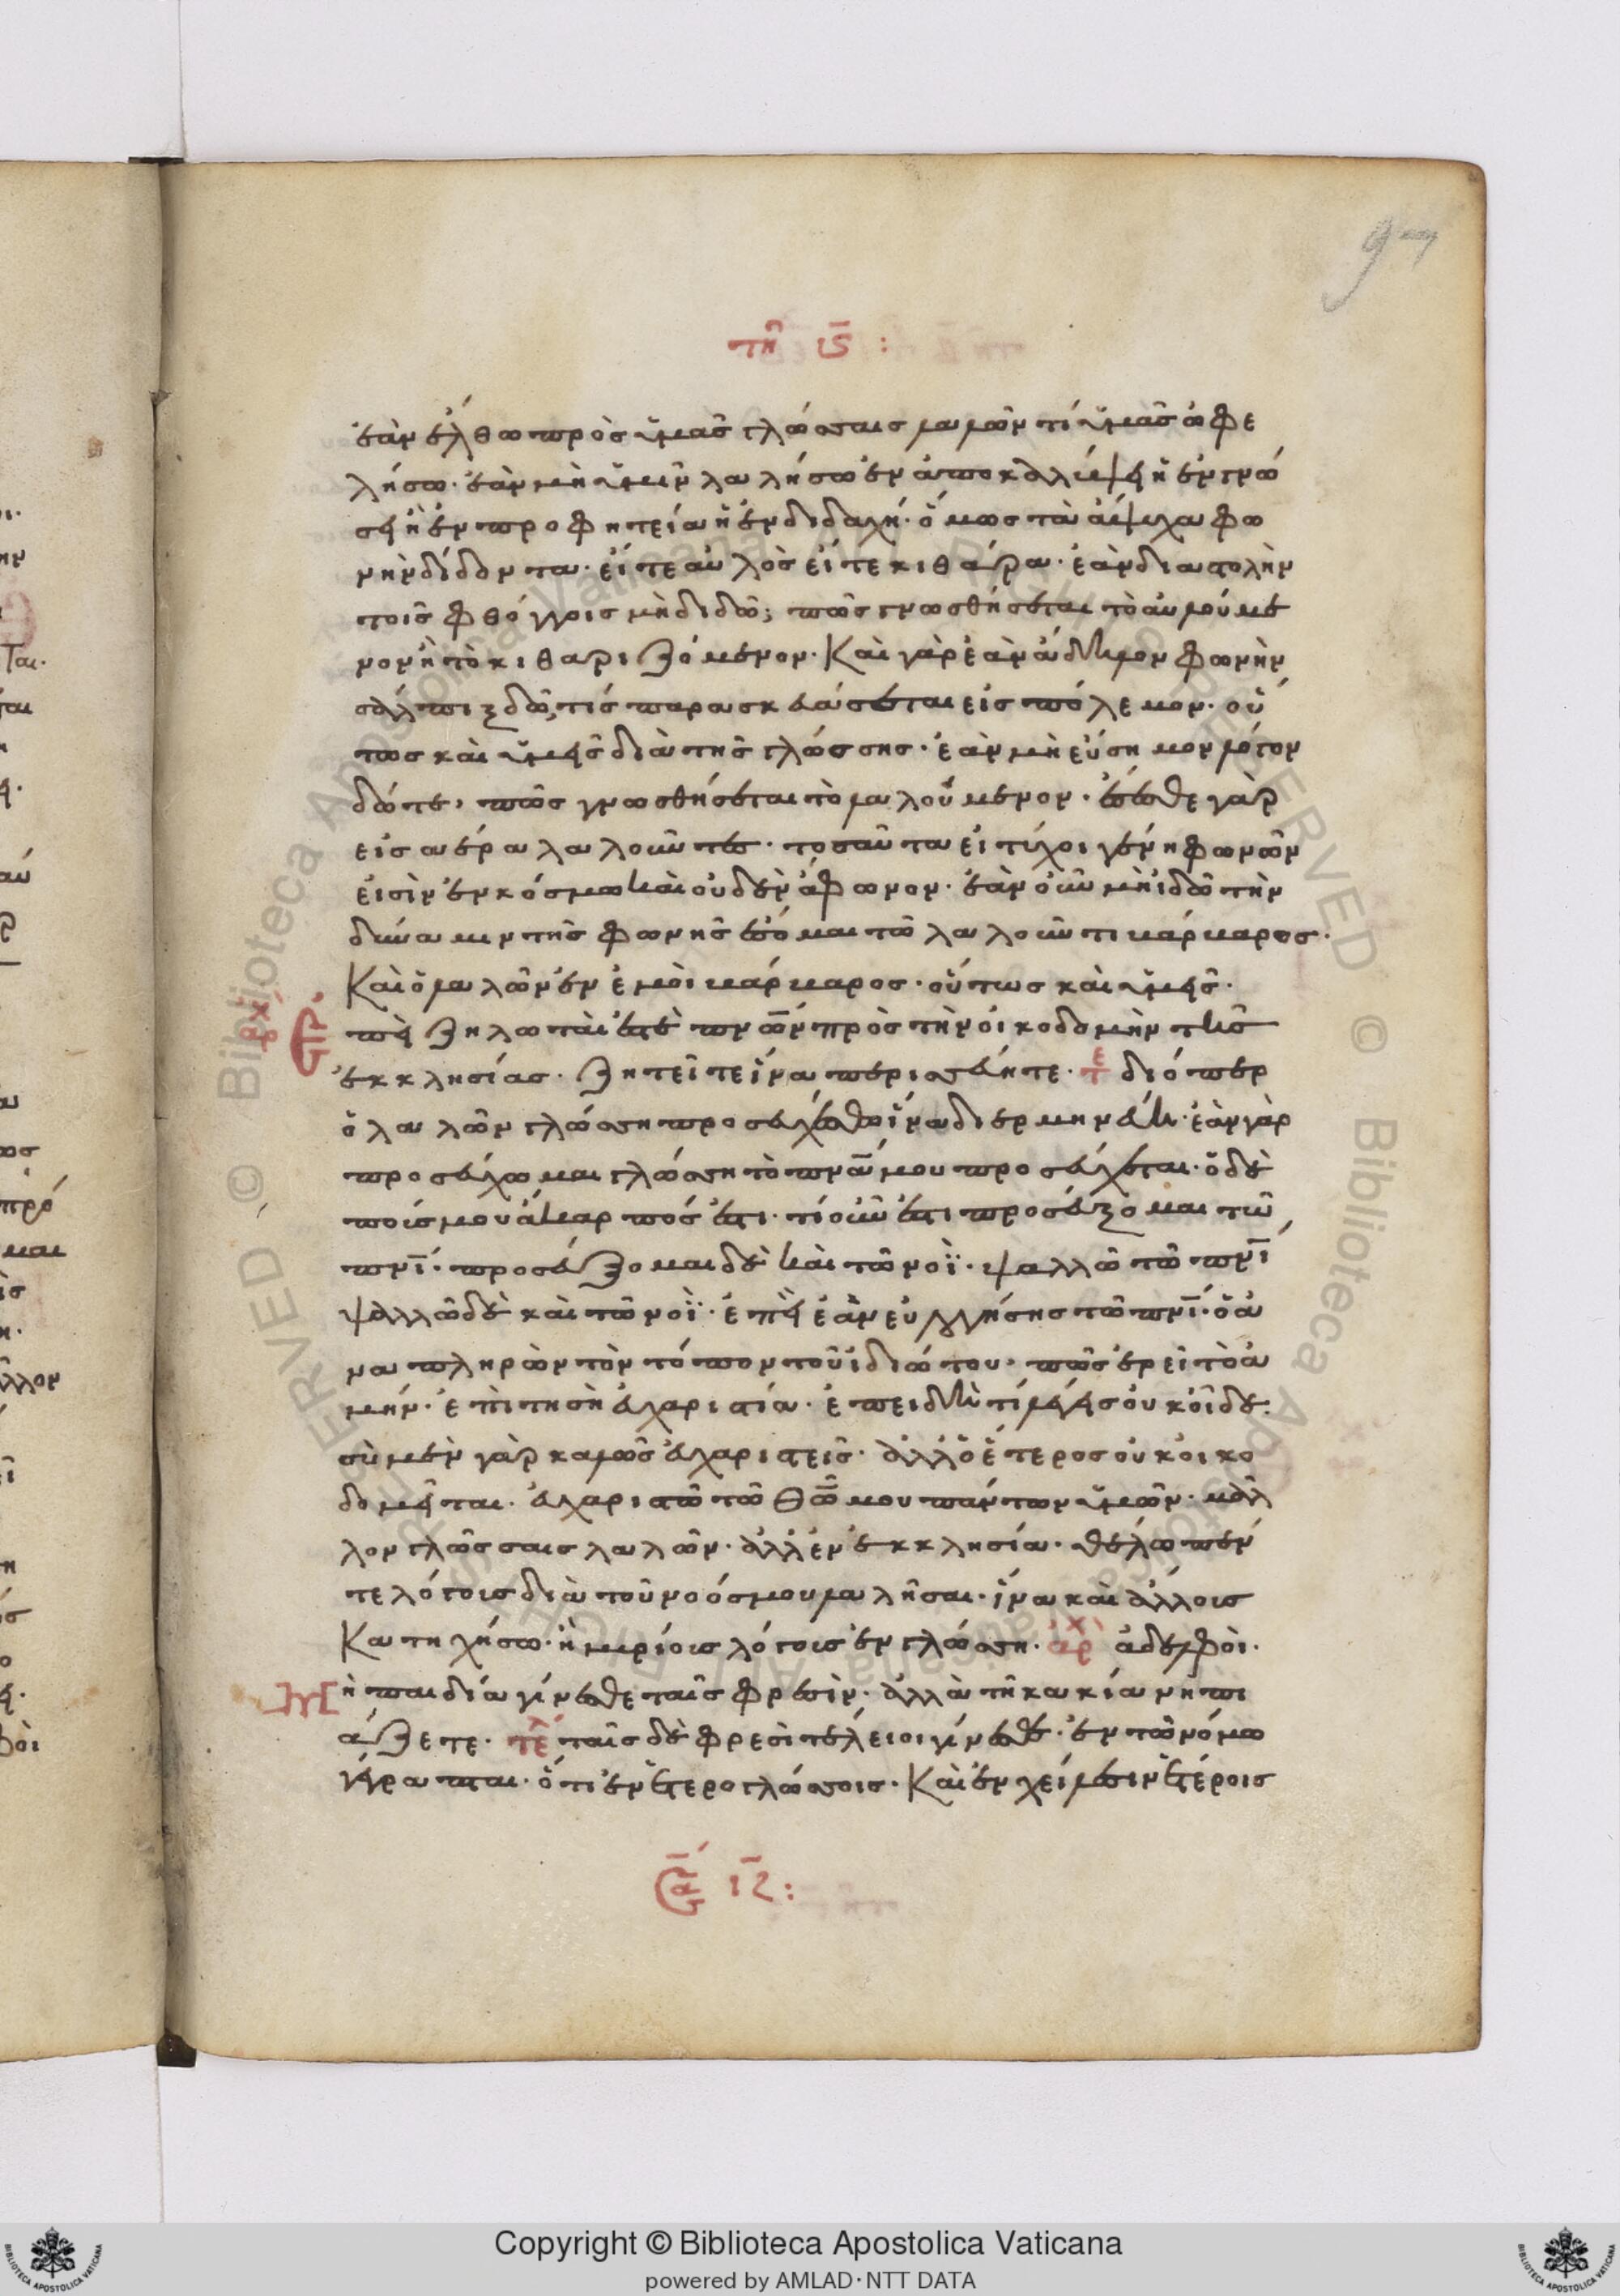 97
τῆ ι̅ϛ̅ :
ἐὰν ἔλθω πρὸς ὑμᾶς γλώσσαις λαλῶν τί ὑμᾶς ὠφε
λήσω· ἐὰν μὴ ὑμῖν λαλήσω ἐν ἀποκαλύψει ἢ ἐν γνώ
σει ἢ ἐν προφητεία ἢ ἐν διδαχῆ· ὅμως τὰ ἄψυχα φω
νὴν δίδοντα· εἴτε αὐλὸς εἴτε κιθάρα· ἐὰν διαστολὴν
τοῖς φθόγγοις μὴ διδῶ; πῶς γνωσθήσεται τὸ αὐλούμε
νον ἢ τὸ κιθαριζόμενον· Καὶ γὰρ ἐὰν ἄδηλον φωνὴν
σάλπιγξ δῶ, τίς παρασκευάσεται εἰς πόλεμον· οὕ
τως καὶ ὑμεῖς διὰ τῆς γλώσσης· ἐὰν μὴ εὔσημον λόγον
δῶτε, πῶς γνωσθήσεται τὸ λαλούμενον· ἔσεσθε γὰρ
εἰς ἀέρα λαλοῦντες· τοσαῦτα εἰ τύχοι γένη φωνῶν
εἰσὶν ἐν κόσμω καὶ οὐδὲν ἄφωνον· ἐὰν οὖν μὴ ἰδῶ τὴν
δύναμιν τῆς φωνῆς ἔσομαι τῶ λαλοῦντι βάρβαρος·
Καὶ ὁ λαλῶν ἐν ἐμοὶ βάρβαρος· οὕτως καὶ ὑμεῖς·
ἐπεὶ ζηλωταί ἐστὲ πν̅ω̅ν πρὸς τὴν οἰκοδομὴν τῆς
ἐκκλησίας· ζητεῖτε ἵνα περισσεύητε· τε διόπερ
ὁ λαλῶν γλώσση προσευχέσθω ἵνα διερμηνεύη· ἐὰν γὰρ
προσεύχωμαι γλώσση τὸ πν̅α̅ μου προσεύχεται· ὁ δὲ
νοῦς μου ἄκαρπός ἐστι· τί οὖν ἐστι προσεύξομαι τῶ
πν̅ι̅· προσεύξομαι δὲ καὶ τῶ νοΐ· ψαλλῶ τῶ πν̅ι̅
ψαλλῶ δὲ καὶ τῶ νοΐ· ἐπεὶ ἐὰν εὐλογήσης τῶ πν̅ι̅· ὁ ἀ
ναπληρῶν τὸν τόπον τοῦ ἰδιώτου, πῶς ἐρεῖ τὸ ἀ
μήν· ἐπὶ τῆ σῆ εὐχαριστία· ἐπειδὴ τί λέγεις οὐκ οἶδε·
σὺ μὲν γὰρ καλῶς εὐχαριστεῖς· ἀλλ ὁ ἕτερος οὐκ οἰκο
δομεῖται· εὐχαριστῶ τῶ θ̅ω̅ μου πάντων ὑμῶν· μᾶλ
λον γλώσσαις λαλῶν· ἀλλ ἐν ἐκκλησία· θέλω πέν
τε λόγους διὰ τοῦ νοός μου λαλῆσαι· ἵνα καὶ ἄλλους
Κατηχήσω· ἢ μυρίους λόγους ἐν γλώσση· ἀρχ ἀδελφοὶ·
μὴ παιδία γίνεσθε ταῖς φρεσὶν· ἀλλὰ τῆ κακία νηπι
άζετε· τελ ταῖς δὲ φρεσὶ τέλειοι γίνεσθε· ἐν τῶ νόμω
γέγραπται· ὅτι ἐν ἑτερογλώσσοις· Καὶ ἐν χείλεσιν ἑτέροις
Copyright © Biblioteca Apostolica Vaticana
powered by AMLAD·NTT DATA